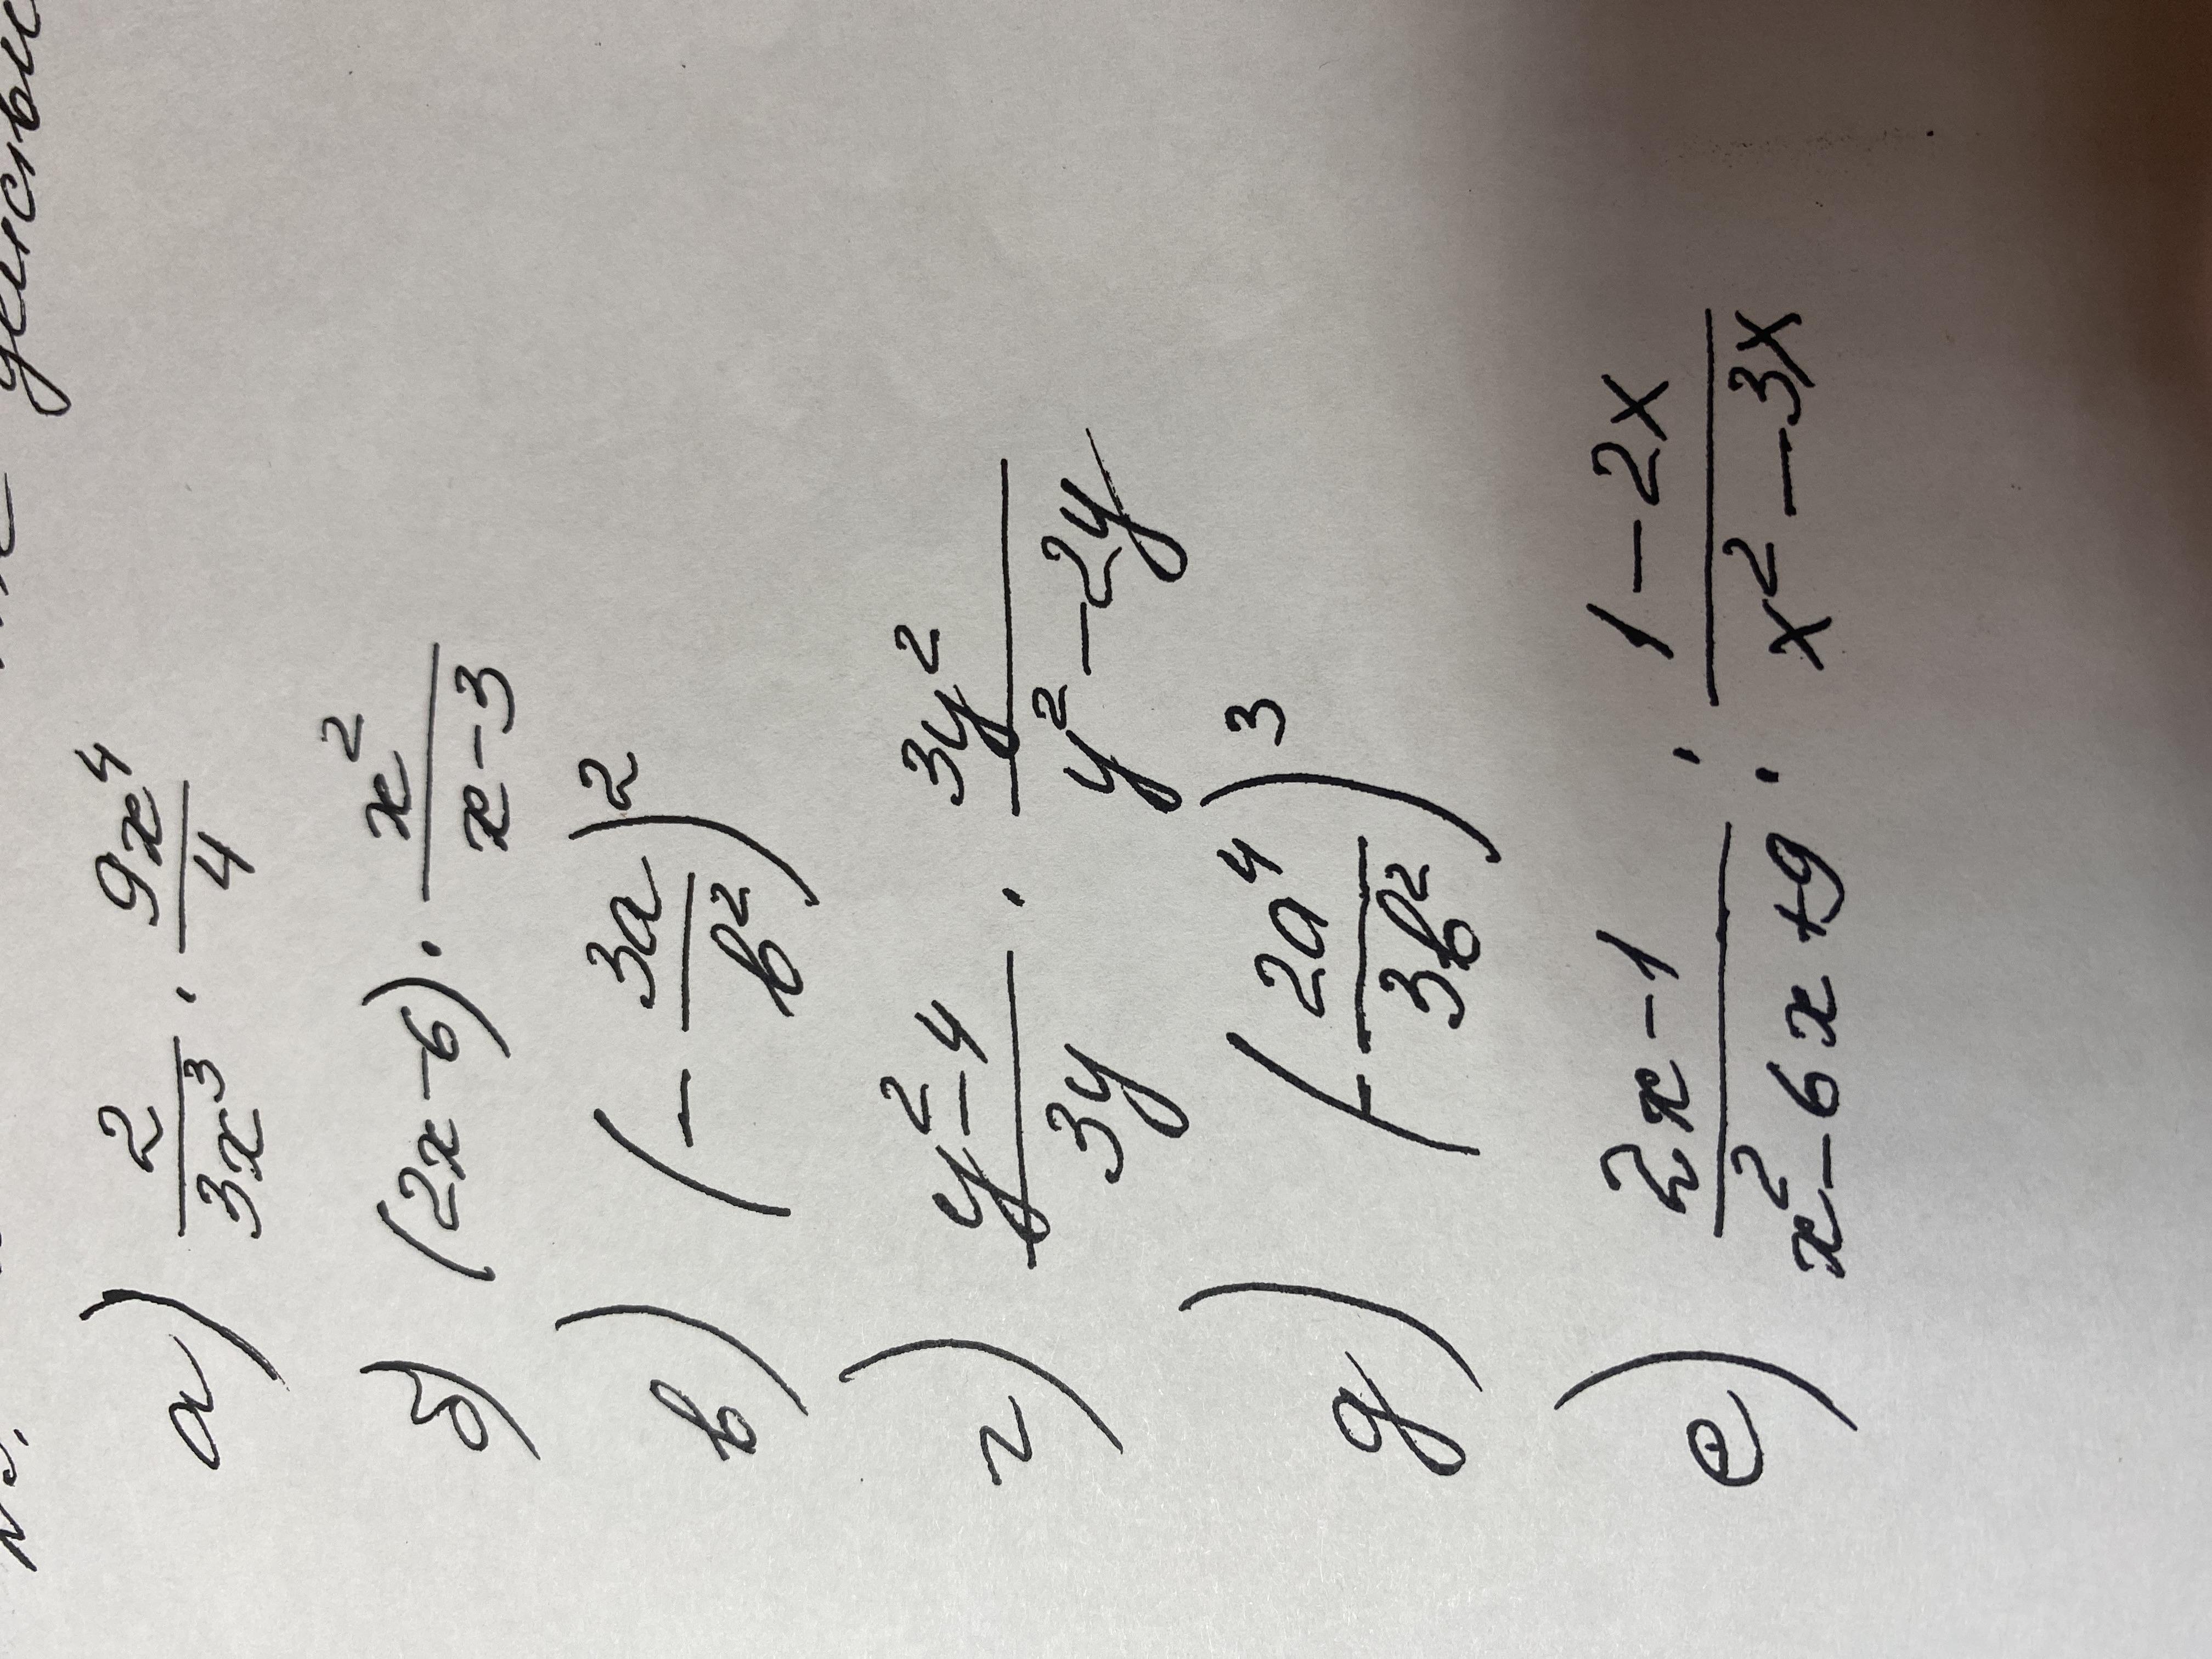 а) 2/(3x³) · 9x⁴/4
б) (2x-6) · x²/(x-3)
в) (- 3a/b²)²
г) (y²-4)/(3y) · 3y²/(y²-2y)
д) (- 2a⁴/(3b²))³
е) (2x-1)/(x²-6x+9) : (1-2x)/(x²-3x)